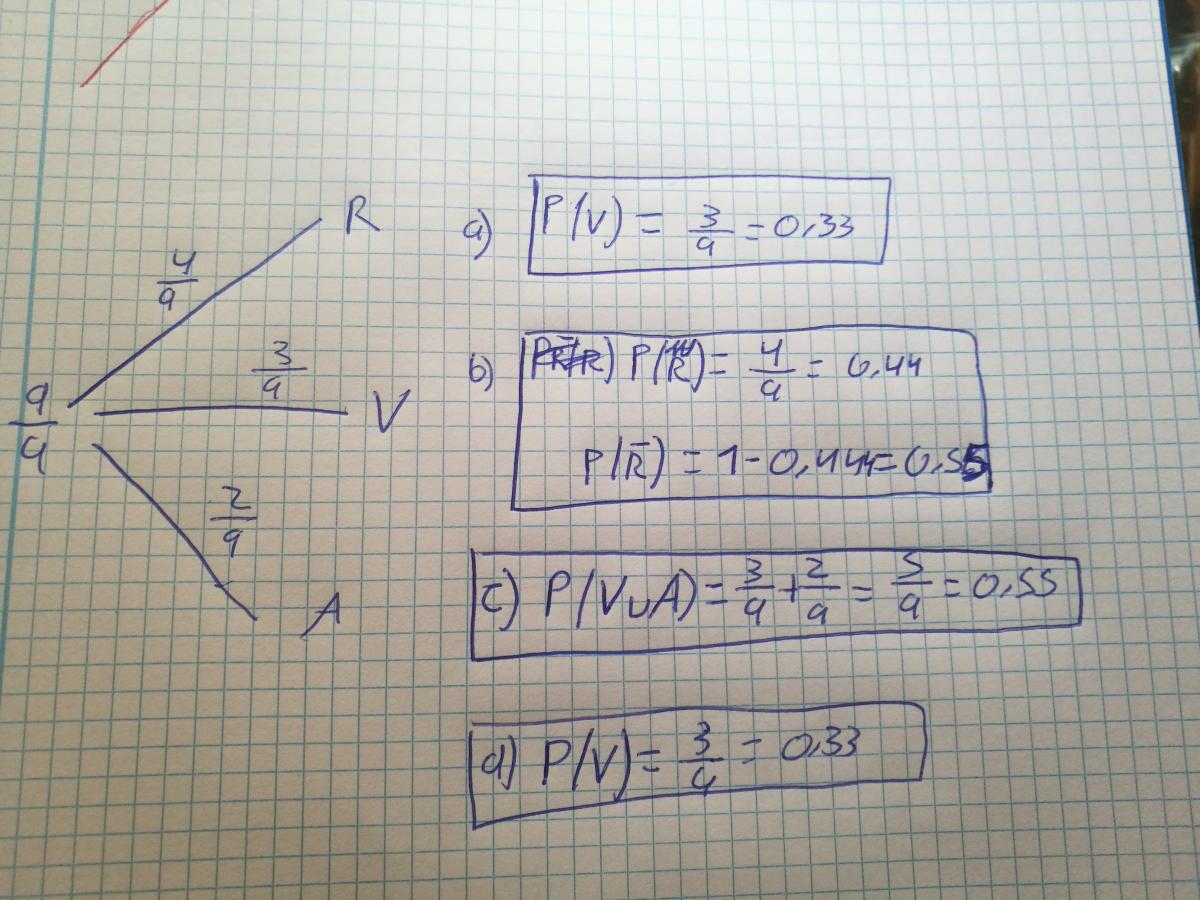 R
4/9
3/9
9/9
V
2/9
A
a) P(V) = 3/9 = 0,33
b) P(R) = 4/9 = 0,44
P(R̅) = 1 - 0,44 = 0,55
c) P(V∪A) = 3/9 + 2/9 = 5/9 = 0,55
d) P(V) = 3/9 = 0,33